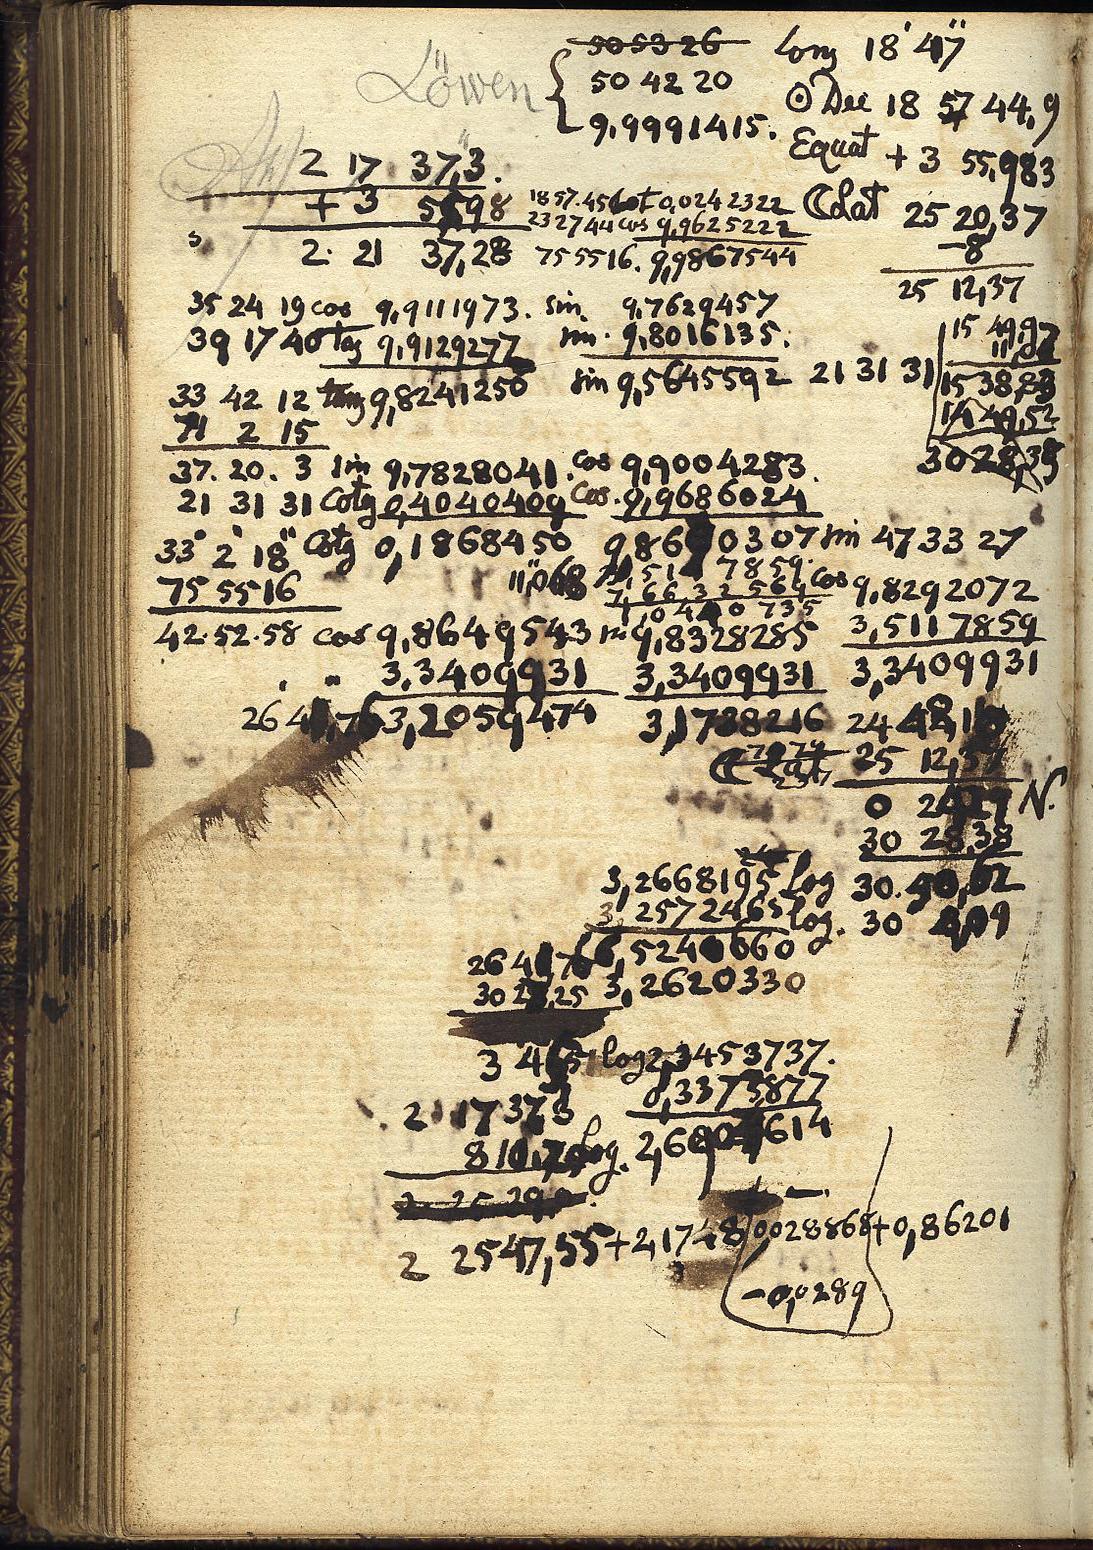 50 53 26 Long 18' 47"
Löwen { 50 42 20
☉ Dec 18 57 44,9
9,9991415.
Equat + 3 55,983
2 17 37,3.
+ 3 55,98 18 57.45 Cot 0,0242322 ☾ Lat 25 20,37
23 27 44 cos 9,9625222 -8
s 2. 21 37,28 75 55 16. 9,9867544
25 12,37
35 24 19 cos 9,9111973. sin. 9,7629457
39 17 40 tg 9,9129277 sin. 9,8016135.
15 49,97
33 42 12 tang 9,8241250 sin 9,5645592 21 31 31 15 38,83
71 2 15 14 49,52
37. 20. 3 sin 9,7828041. cos 9,9004283. 30 28,35
21 31 31 Cotg 0,4040409 Cos. 9,9686024
33° 2' 18" Cotg 0,1868450 9,8690307 sin 47 33 27
75 55 16 11",068 3,5117859. cos 9,8292072
7,6632564
1,0440735
42.52.58 cos 9,8649543 sin 9,8328285 3,5117859
3,3409931 3,3409931 3,3409931
26 46,76 3,2059474 3,1738216 24 48,10
25 12,37
0 24,27 N.
30 28,38
3,2668195 log 30.
3,2572465 log. 30 4,09
26 46,76 6,5240660
30 27,25 3,2620330
3 log 2,3453737.
0,3373877
2 17 37,3
810,70 log. 2,6
2 25 47,55 + 2,1748 0,028868 + 0,86201
3
-0,0289